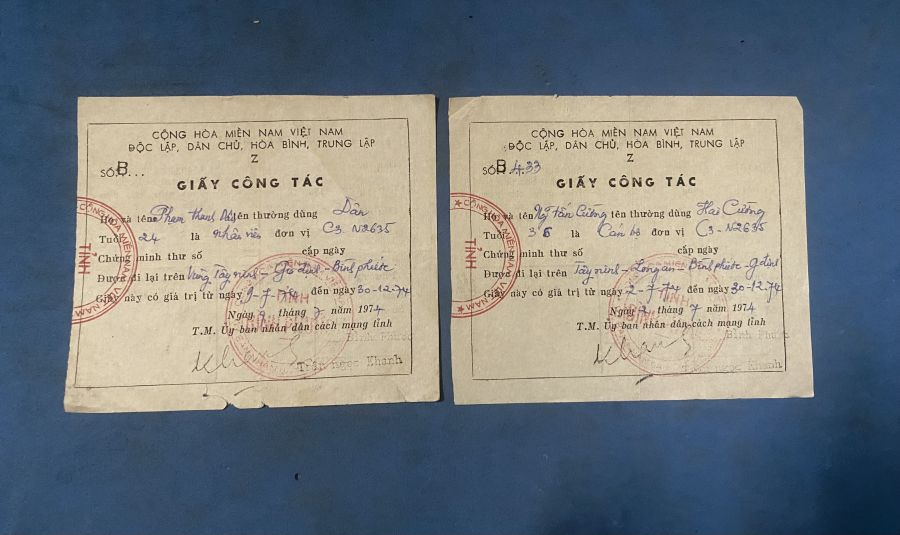 CỘNG HÒA MIỀN NAM VIỆT NAM
ĐỘC LẬP, DÂN CHỦ, HÒA BÌNH, TRUNG LẬP
Z
SỐ: B...
GIẤY CÔNG TÁC
Họ và tên Phạm thanh tên thường dùng Dân
Tuổi 24 là nhân viên đơn vị C3 N2635
Chứng minh thư số cấp ngày
Được đi lại trên Vùng Tây ninh - Gò dầu - Bình phước
Giấy này có giá trị từ ngày 9-7-74 đến ngày 30-12-74
Ngày 9 tháng 7 năm 1974
T.M. Ủy ban nhân dân cách mạng tỉnh
Bình Phước
Khanh
Trần ngọc Khanh
CỘNG HÒA MIỀN NAM VIỆT NAM
TỈNH
CỘNG HÒA MIỀN NAM VIỆT NAM
ĐỘC LẬP, DÂN CHỦ, HÒA BÌNH, TRUNG LẬP
Z
SỐ: B 433
GIẤY CÔNG TÁC
Họ và tên Ng tấn Cường tên thường dùng Hai Cường
Tuổi 36 là Cán bộ đơn vị C3-N2635
Chứng minh thư số cấp ngày
Được đi lại trên Tây ninh - Long an - Bình phước - G dầu
Giấy này có giá trị từ ngày 2-7-74 đến ngày 30-12-74
Ngày 2 tháng 7 năm 1974
T.M. Ủy ban nhân dân cách mạng tỉnh
Bình Phước
Khanh
Trần ngọc Khanh
CỘNG HÒA MIỀN NAM VIỆT NAM
TỈNH